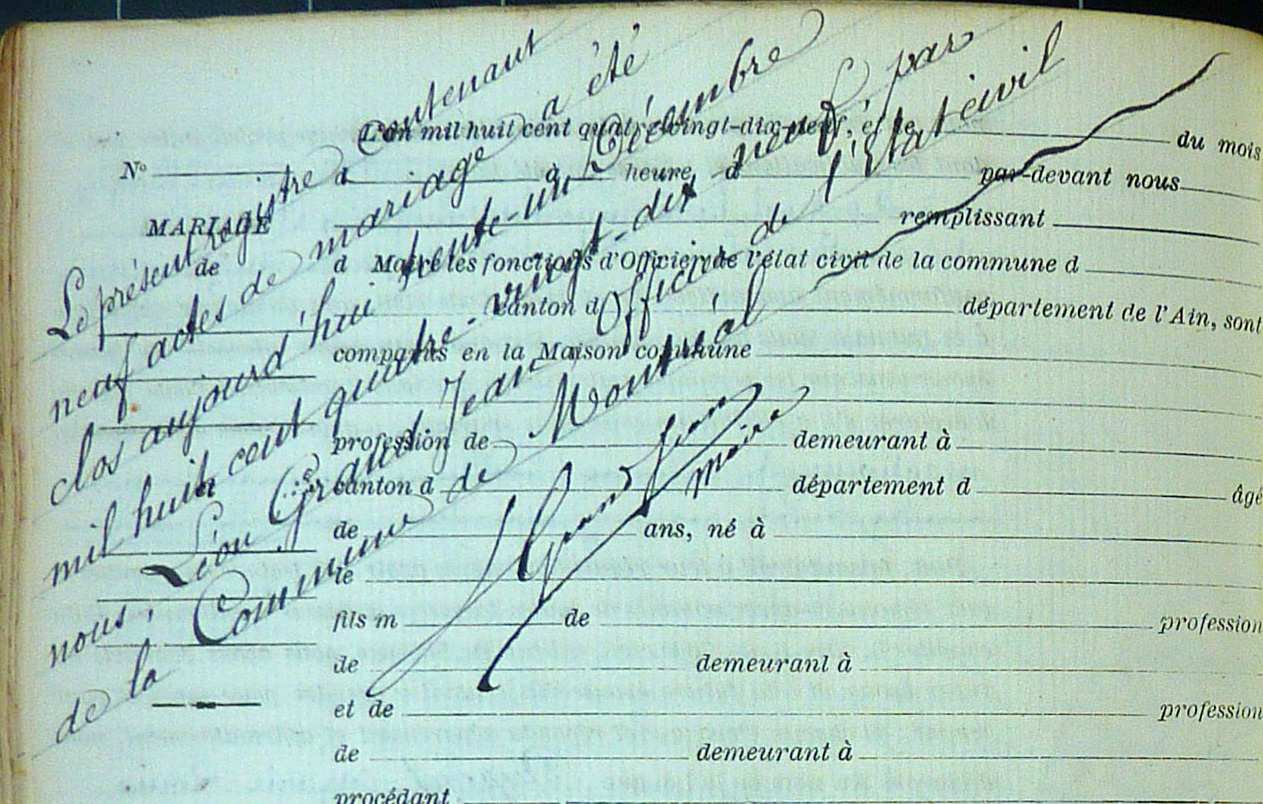 Le présent registre contenant
neuf actes de mariage a été
clos aujourd'hui trente-un Décembre
mil huit cent quatre-vingt-dix neuf par
nous, Léon Grandjean Officier de l'Etat civil
de la Commune de Montréal
maire
L'an mil huit cent quatre-vingt-dix-neuf, et le du mois
N° d à heure d par-devant nous
MARIAGE remplissant
de d Maire les fonctions d'Officier de l'état civil de la commune d
canton d département de l'Ain, sont
comparus en la Maison commune
profession de demeurant à
et canton d département d âgé
de ans, né à
le
fils m de profession
de demeurant à
et de profession
de demeurant à
procédant